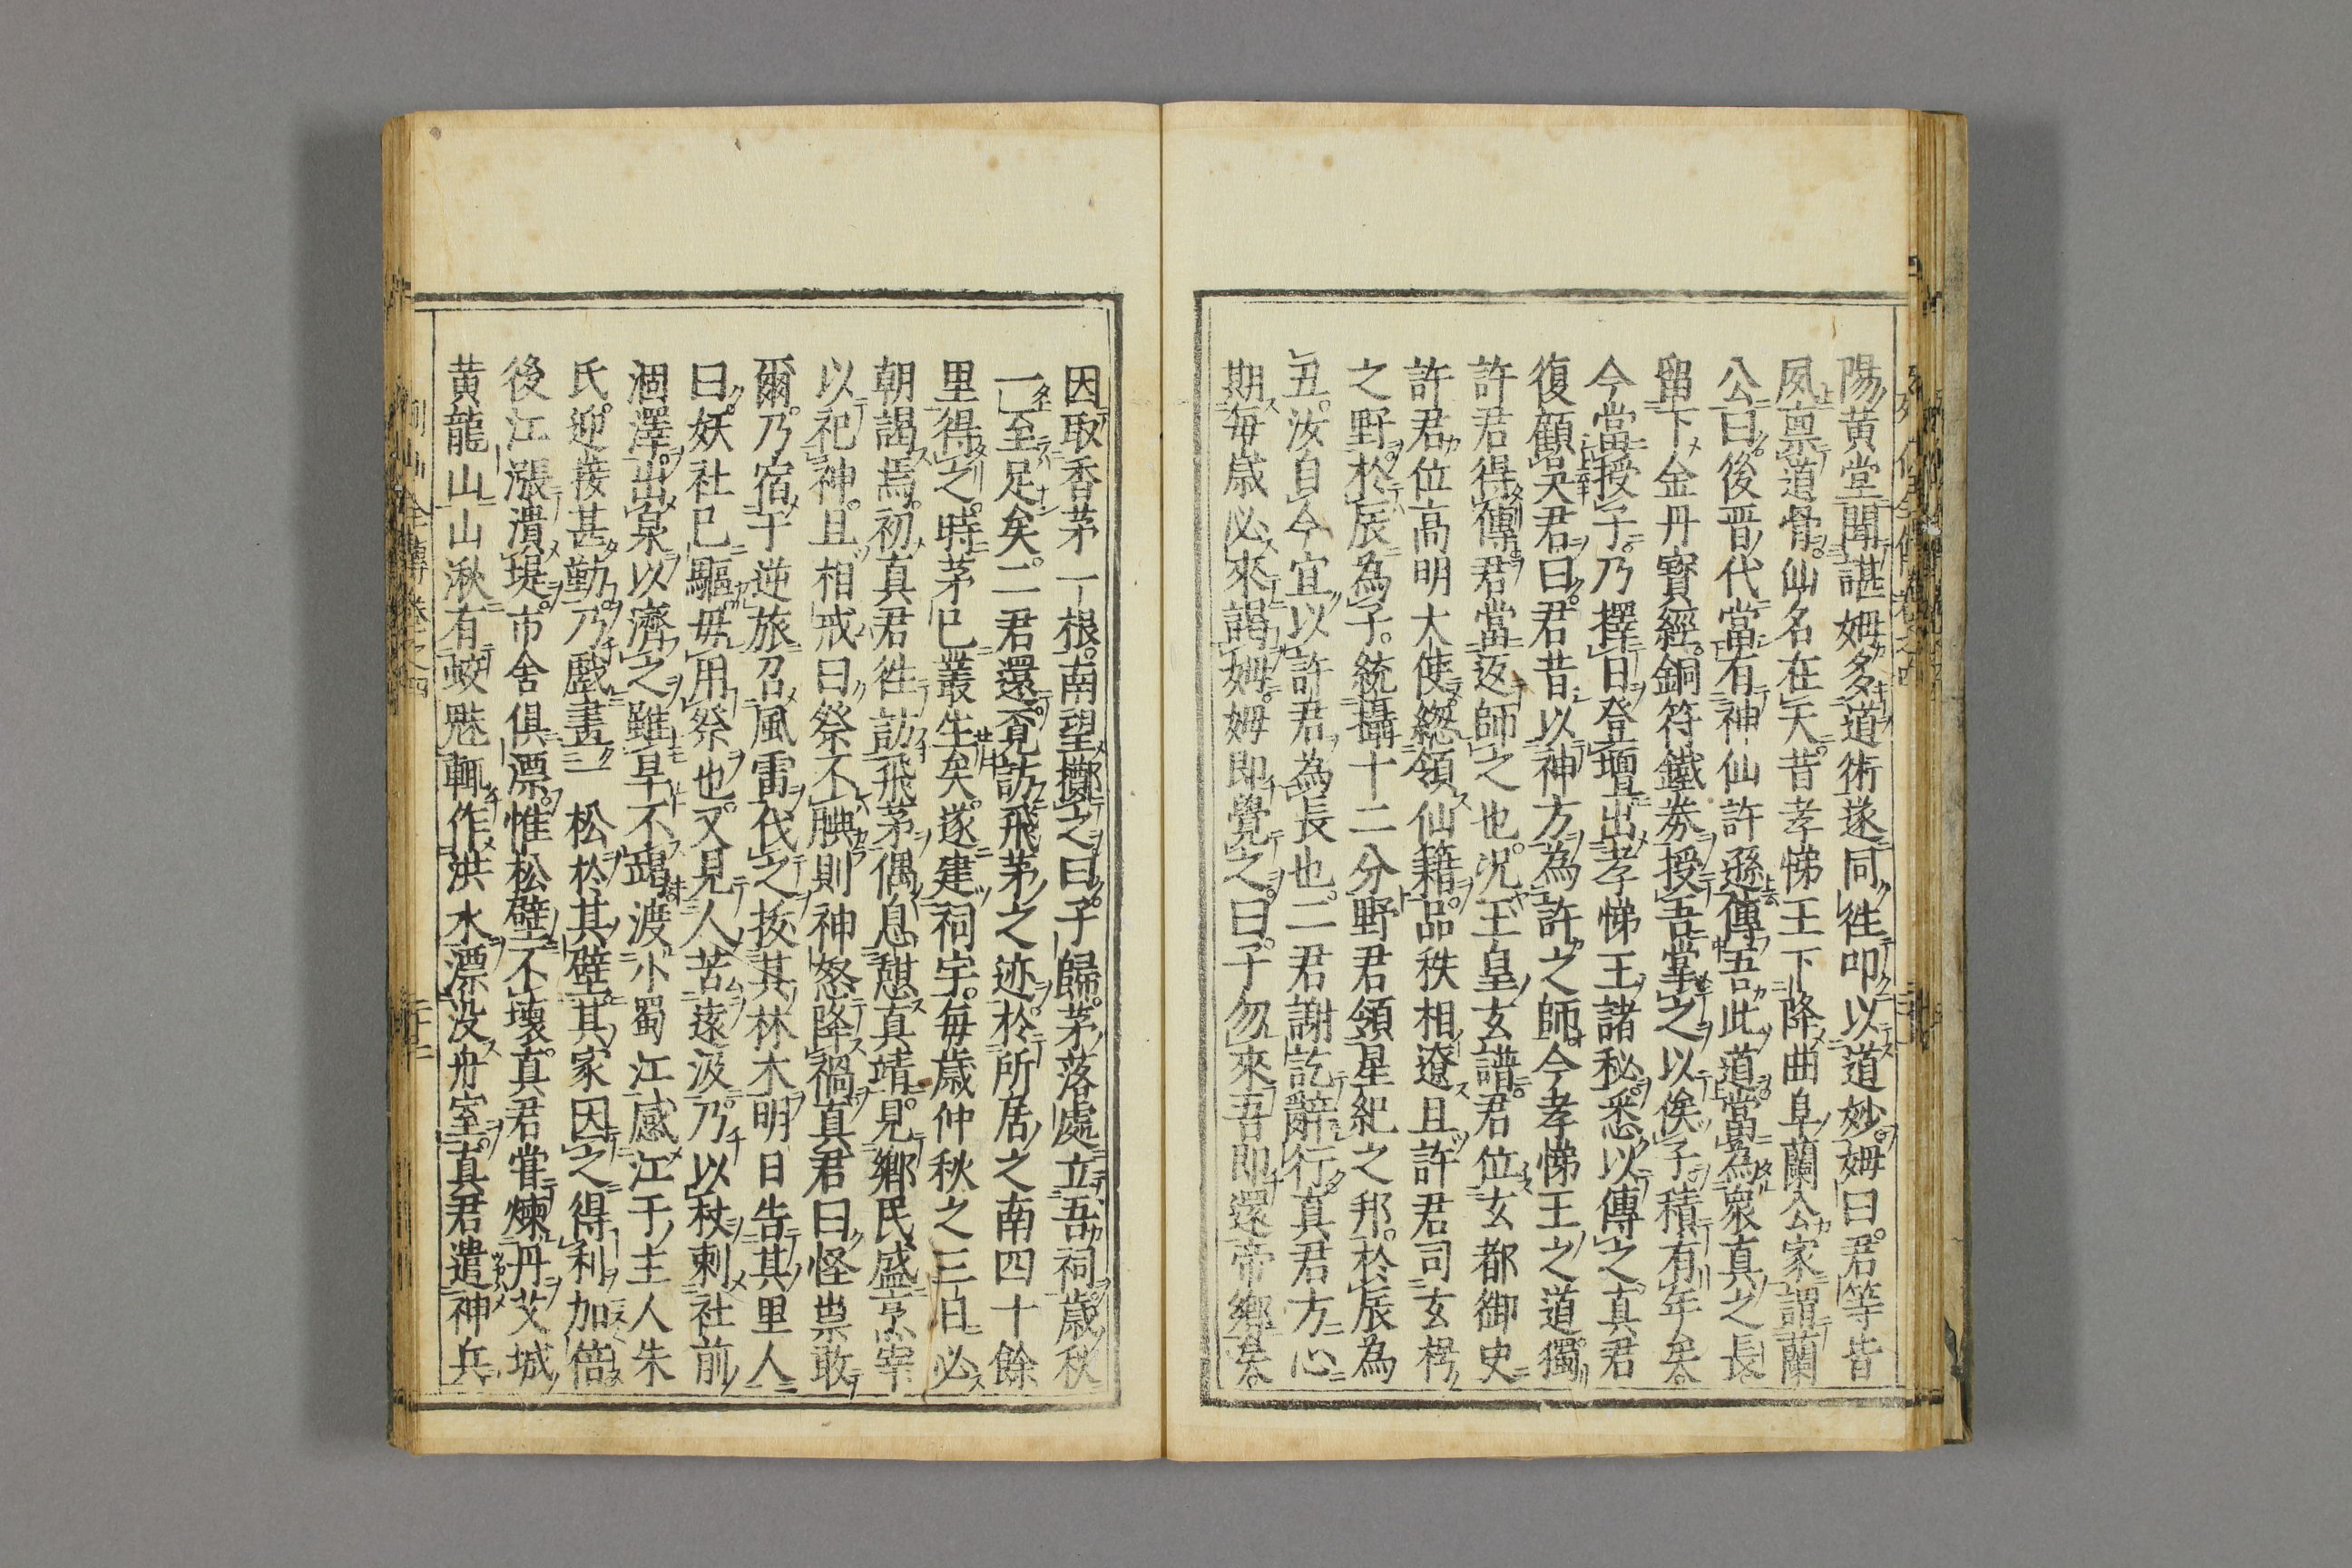 陽黄堂聞諶姆多道術遂同徃叩以道妙姆曰君等皆
夙禀道骨仙名在天昔孝悌王下降曲阜蘭公家謂蘭
公曰後晋代當有神仙許遜傳吾此道當為衆真之長
留下金丹寳經銅符鐵券授吾掌之以俟子積有年矣
今當授子乃擇日登壇出孝悌王諸秘悉以傳之真君
復顧吳君曰君昔以神方為許之師今孝悌王之道獨
許君得傳君當返師之也况玉皇玄譜君位玄都御史
許君位高明大使緫領仙籍品秩相遼且許君司玄枵
之野於辰為子統攝十二分野君領星紀之邦於辰為
丑汝自今宜以許君為長也二君謝訖辭行真君方心
期每歳必來謁姆姆即覺之曰子勿來吾即還帝鄉矣
因取香茅一根南望擲之曰子歸茅落處立吾祠歳秋
一至足矣二君還覔訪飛茅之迹於所居之南四十餘
里得之時茅已叢生矣遂建祠宇每歳仲秋之三日必
朝謁焉初真君徃訪飛茅偶息憇真靖見鄉民盛烹宰
以祀神且相戒曰祭不腆則神怒降禍真君曰怪祟敢
爾乃宿于逆旅召風雷伐之拔其林木明日告其里人
曰妖社已驅毋用祭也又見人苦遠汲乃以杖刺社前
涸澤出泉以濟之雖旱不竭渡小蜀江感江于主人朱
氏迎接甚勤乃戲畫一松於其壁其家因之得利加倍
後江漲潰堤市舍俱漂惟松壁不壞真君嘗煉丹艾城
黄龍山山湫有蛟魅輒作洪水漂没舟室真君遣神兵